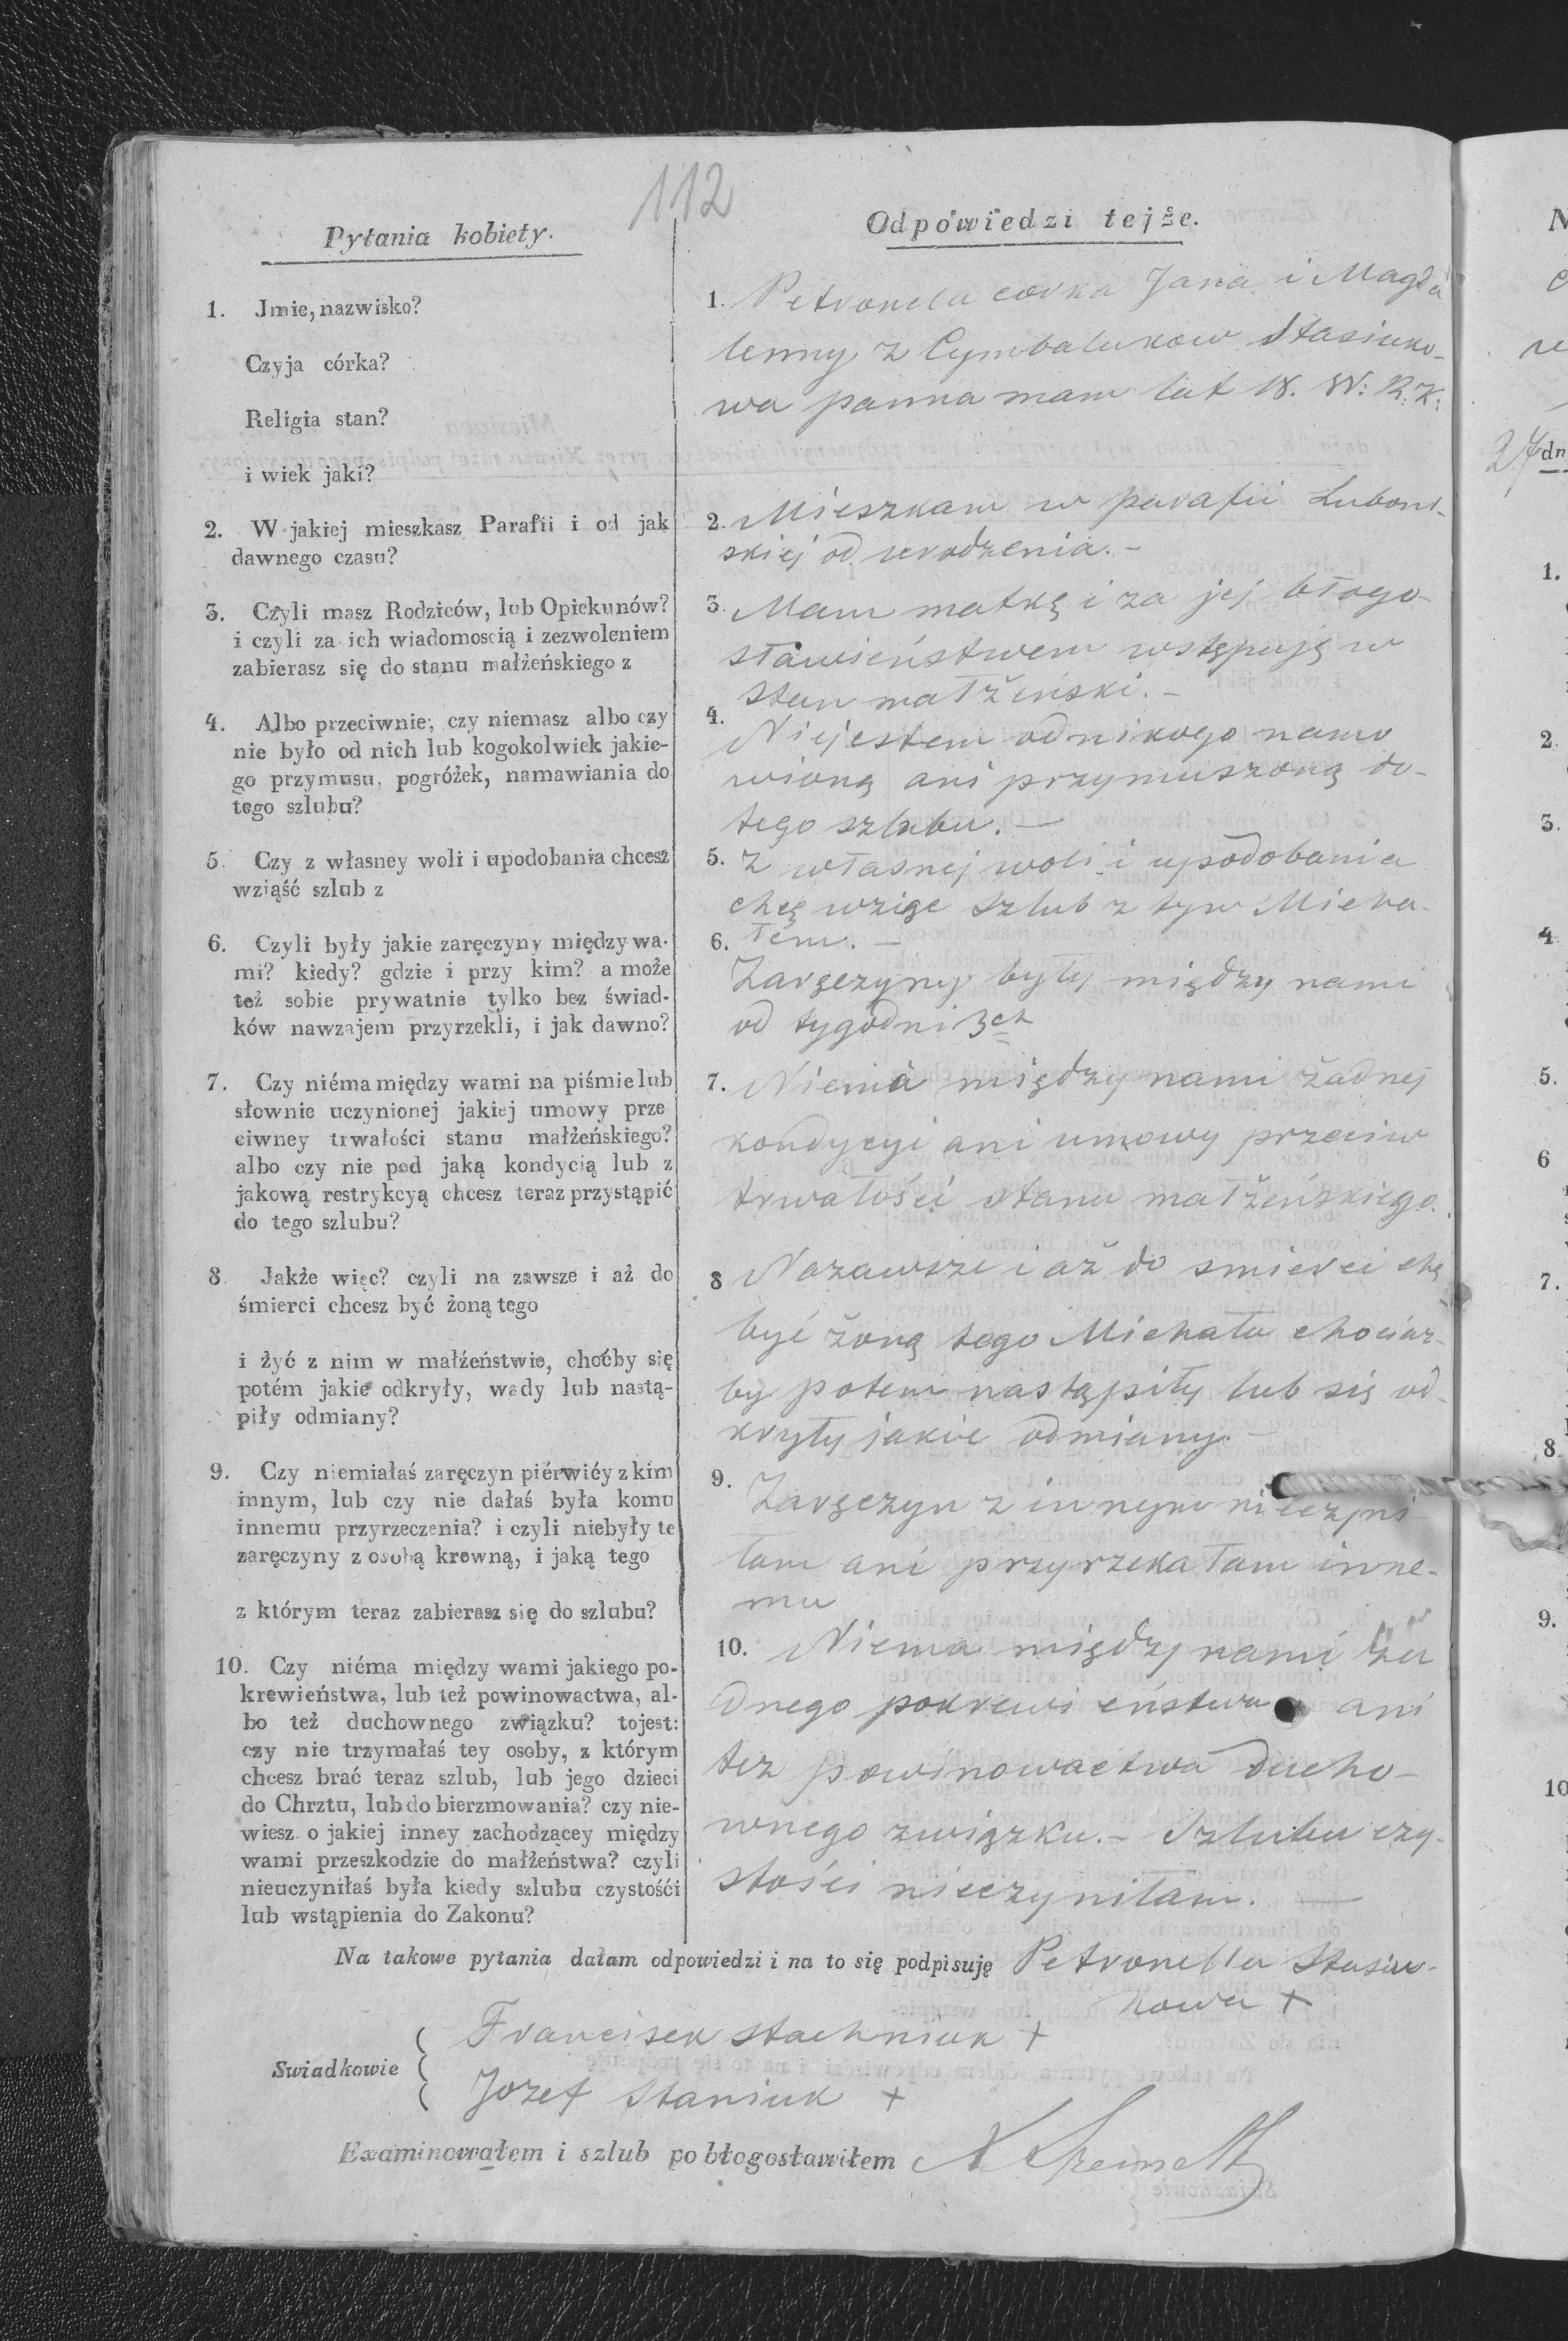 112
Pytania kobiety.
1. Jmie, nazwisko?
Czyja córka?
Religia stan?
i wiek jaki?
2. W jakiej mieszkasz Parafii i od jak
dawnego czasu?
3. Czyli masz Rodziców, lub Opiekunów?
i czyli za ich wiadomoscią i zezwoleniem
zabierasz się do stanu małżeńskiego z
4. Albo przeciwnie; czy niemasz albo czy
nie było od nich lub kogokolwiek jakie-
go przymusu, pogróżek, namawiania do
tego szlubu?
5. Czy z własney woli i upodobania chcesz
wziąść szlub z
6. Czyli były jakie zaręczyny między wa-
mi? kiedy? gdzie i przy kim? a może
też sobie prywatnie tylko bez świad-
ków nawzajem przyrzekli, i jak dawno?
7. Czy niéma między wami na piśmie lub
słownie uczynionej jakiej umowy prze
ciwney trwałości stanu małżeńskiego?
albo czy nie pod jaką kondycią lub z
jakową restrykcyą chcesz teraz przystąpić
do tego szlubu?
8. Jakże więc? czyli na zawsze i aż do
śmierci chcesz być żoną tego
i żyć z nim w małżeństwie, choćby się
potém jakie odkryły, wady lub nastą-
piły odmiany?
9. Czy niemiałaś zaręczyn piérwiéy z kim
innym, lub czy nie dałaś była komu
innemu przyrzeczenia? i czyli niebyły te
zaręczyny z osobą krewną, i jaką tego
z którym teraz zabierasz się do szlubu?
10. Czy niéma między wami jakiego po-
krewieństwa, lub też powinowactwa, al-
bo też duchownego związku? tojest:
czy nie trzymałaś tey osoby, z którym
chcesz brać teraz szlub, lub jego dzieci
do Chrztu, lub do bierzmowania? czy nie-
wiesz o jakiej inney zachodzącey między
wami przeszkodzie do małżeństwa? czyli
nieuczyniłaś była kiedy szlubu czystośći
lub wstąpienia do Zakonu?
Odpowiedzi tejże.
1. Petronella corka Jana i Magda
lenny z Cymbalukow Stasiuko-
wa panna mam lat 18. W: R: K:
2. Mieszkam w parafii Lubom-
skiej od urodzenia. -
3. Mam matkę i za jej błogo-
sławieństwem wstępuję w
stan małżeński. -
4. Niejestem od nikogo namo
wioną ani przymuszoną do-
tego szlubu. -
5. z własnej woli i upodobania
chcę wziąc szlub z tym Micha-
6. łem. -
Zaręczyny były między nami
od tygodni 3ch
7. Niema między nami żadnej
kondycyi ani umowy przeciw
trwałości stanu małżeńskiego.
8 Nazawsze i aż do smierci chcę
być żoną tego Michała chociaż-
by potem nastąpiły lub się od-
kryły jakie odmiany. -
9. Zaręczyn z innym nieczyni-
łam ani przyrzekałam inne-
mu
10. Niema między nami ża
dnego pokrewieństwa ani
tez powinowactwa ducho-
wnego związku. - Szlubu czy-
stości nieczyniłam. -
Na takowe pytania dałam odpowiedzi i na to się podpisuję Petronella Stasiu-
kowa +
Swiadkowie
Francisek Stachniuk +
Jozef Staniuk +
Examinowałem i szlub pobłogosławiłem
27 dn
1.
2.
3.
4
5.
6
7.
8
9.
10